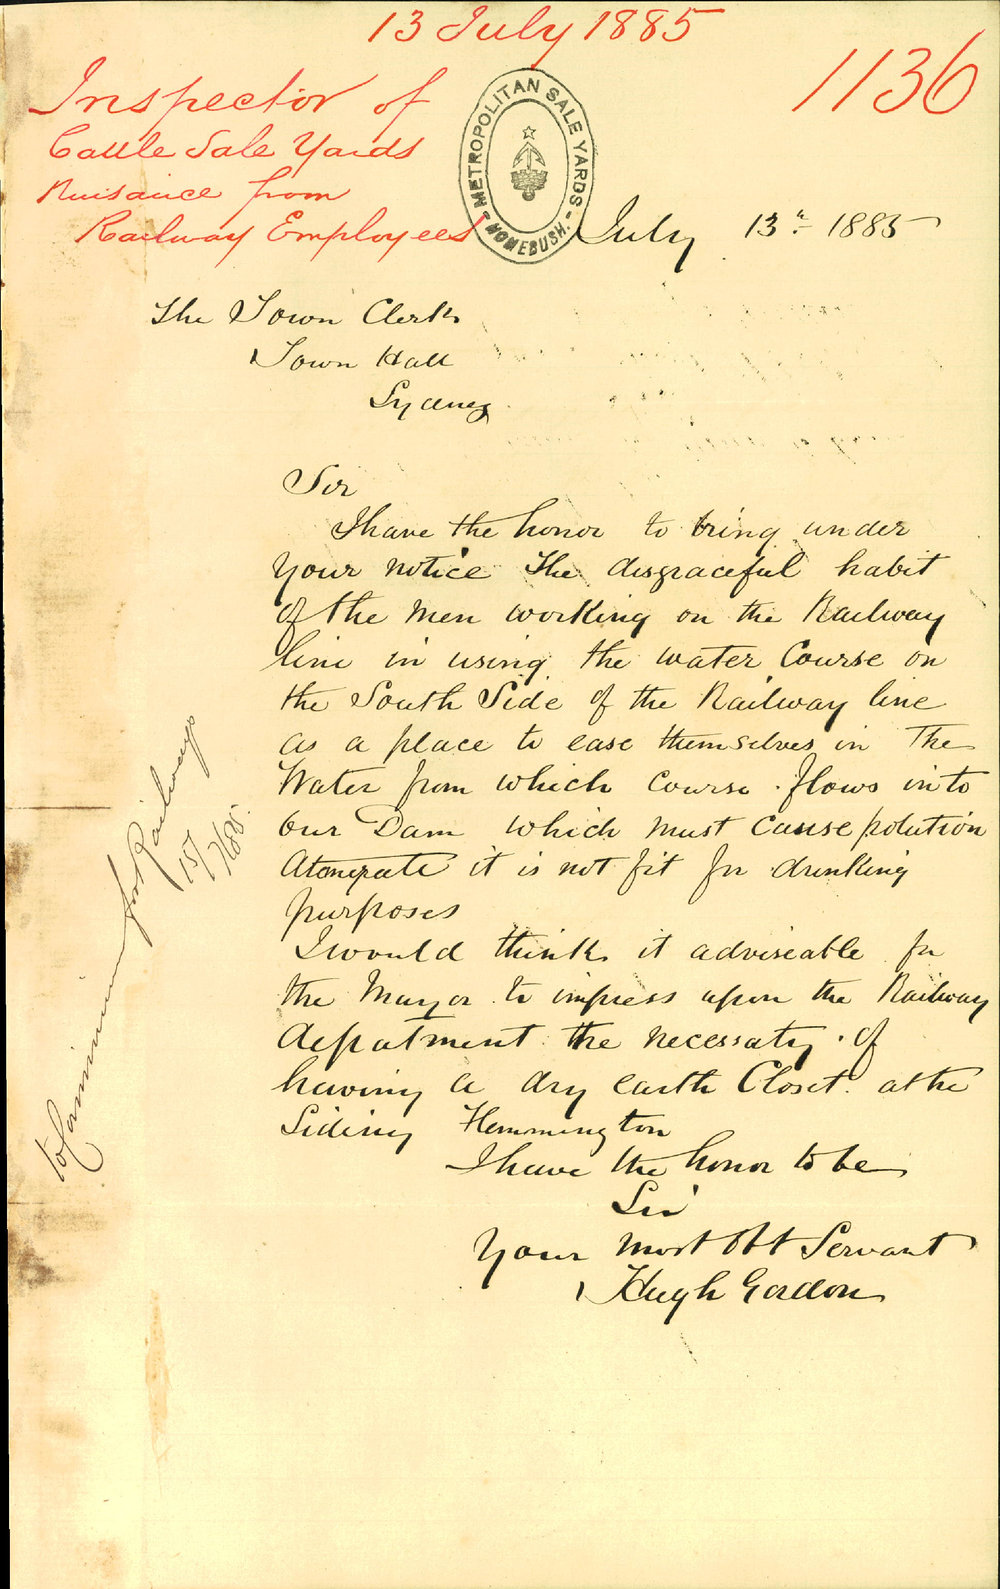 13 July 1885
1136
Inspector of
Cattle Sale Yards
Nuisance from
Railway Employees
METROPOLITAN SALE YARDS
HOMEBUSH.
July 13th 1885
The Town Clerk
Town Hall
Sydney
Sir
I have the honor to bring under
your notice the disgraceful habit
of the men working on the Railway
line in using the water Course on
the South Side of the Railway line
as a place to ease themselves in The
Water from which course flows into
our Dam which must cause polution
at it is not fit for drinking
purposes
I would think it adviseable for
the Mayor to impress upon the Railway
depatment the necessaty of
having a dry earth Closet at the
Siding Flemmington
I have the honor to be
Sir
Your most Obt Servant
Hugh Gordon
to Commissioner for Railways
15/7/85.